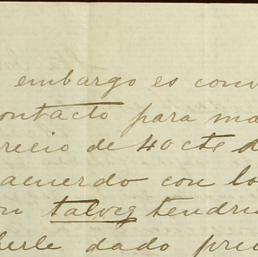 embargo es conv
ontacto para ma
recio de 40 cts d
acuerdo con lo
on talvez tendri
berle dado prec